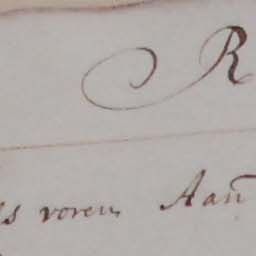 R
ls voren Aan